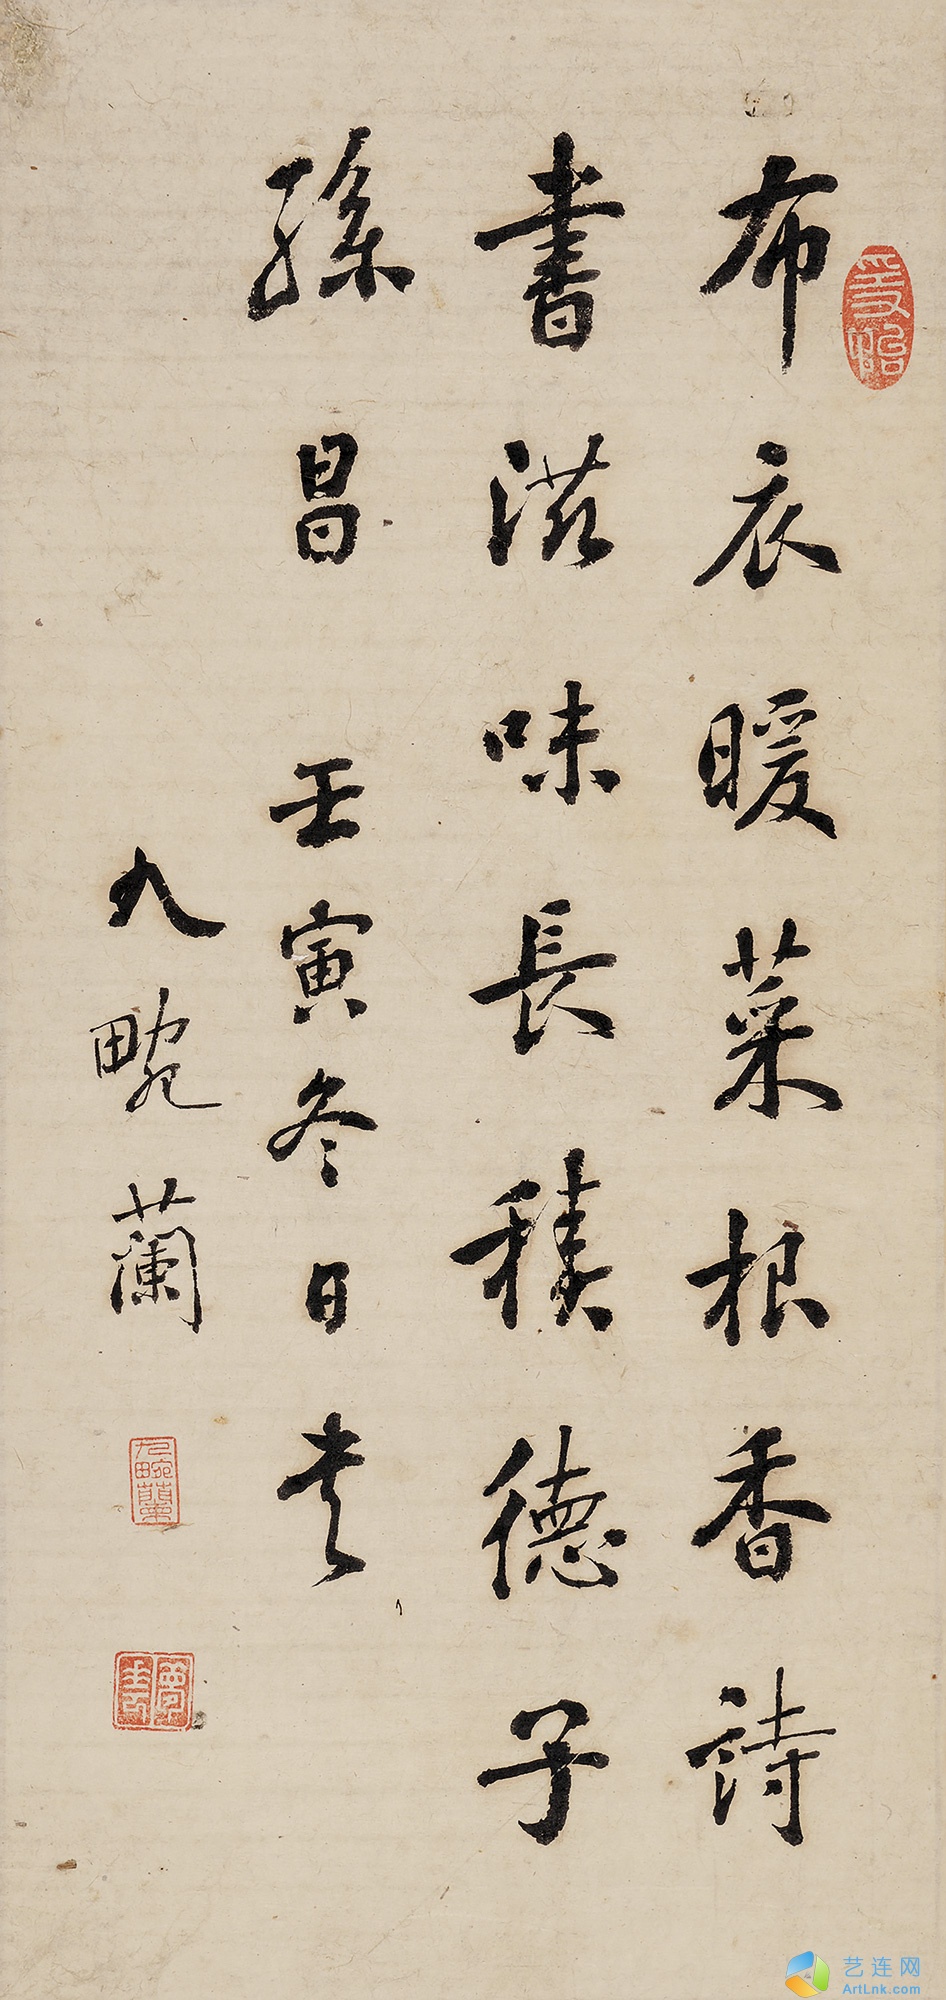 布衣暖菜根香詩
書滋味長積德子
孫昌 壬寅冬日書
九畹蘭
九畹蘭
艺连网
ArtLnk.com